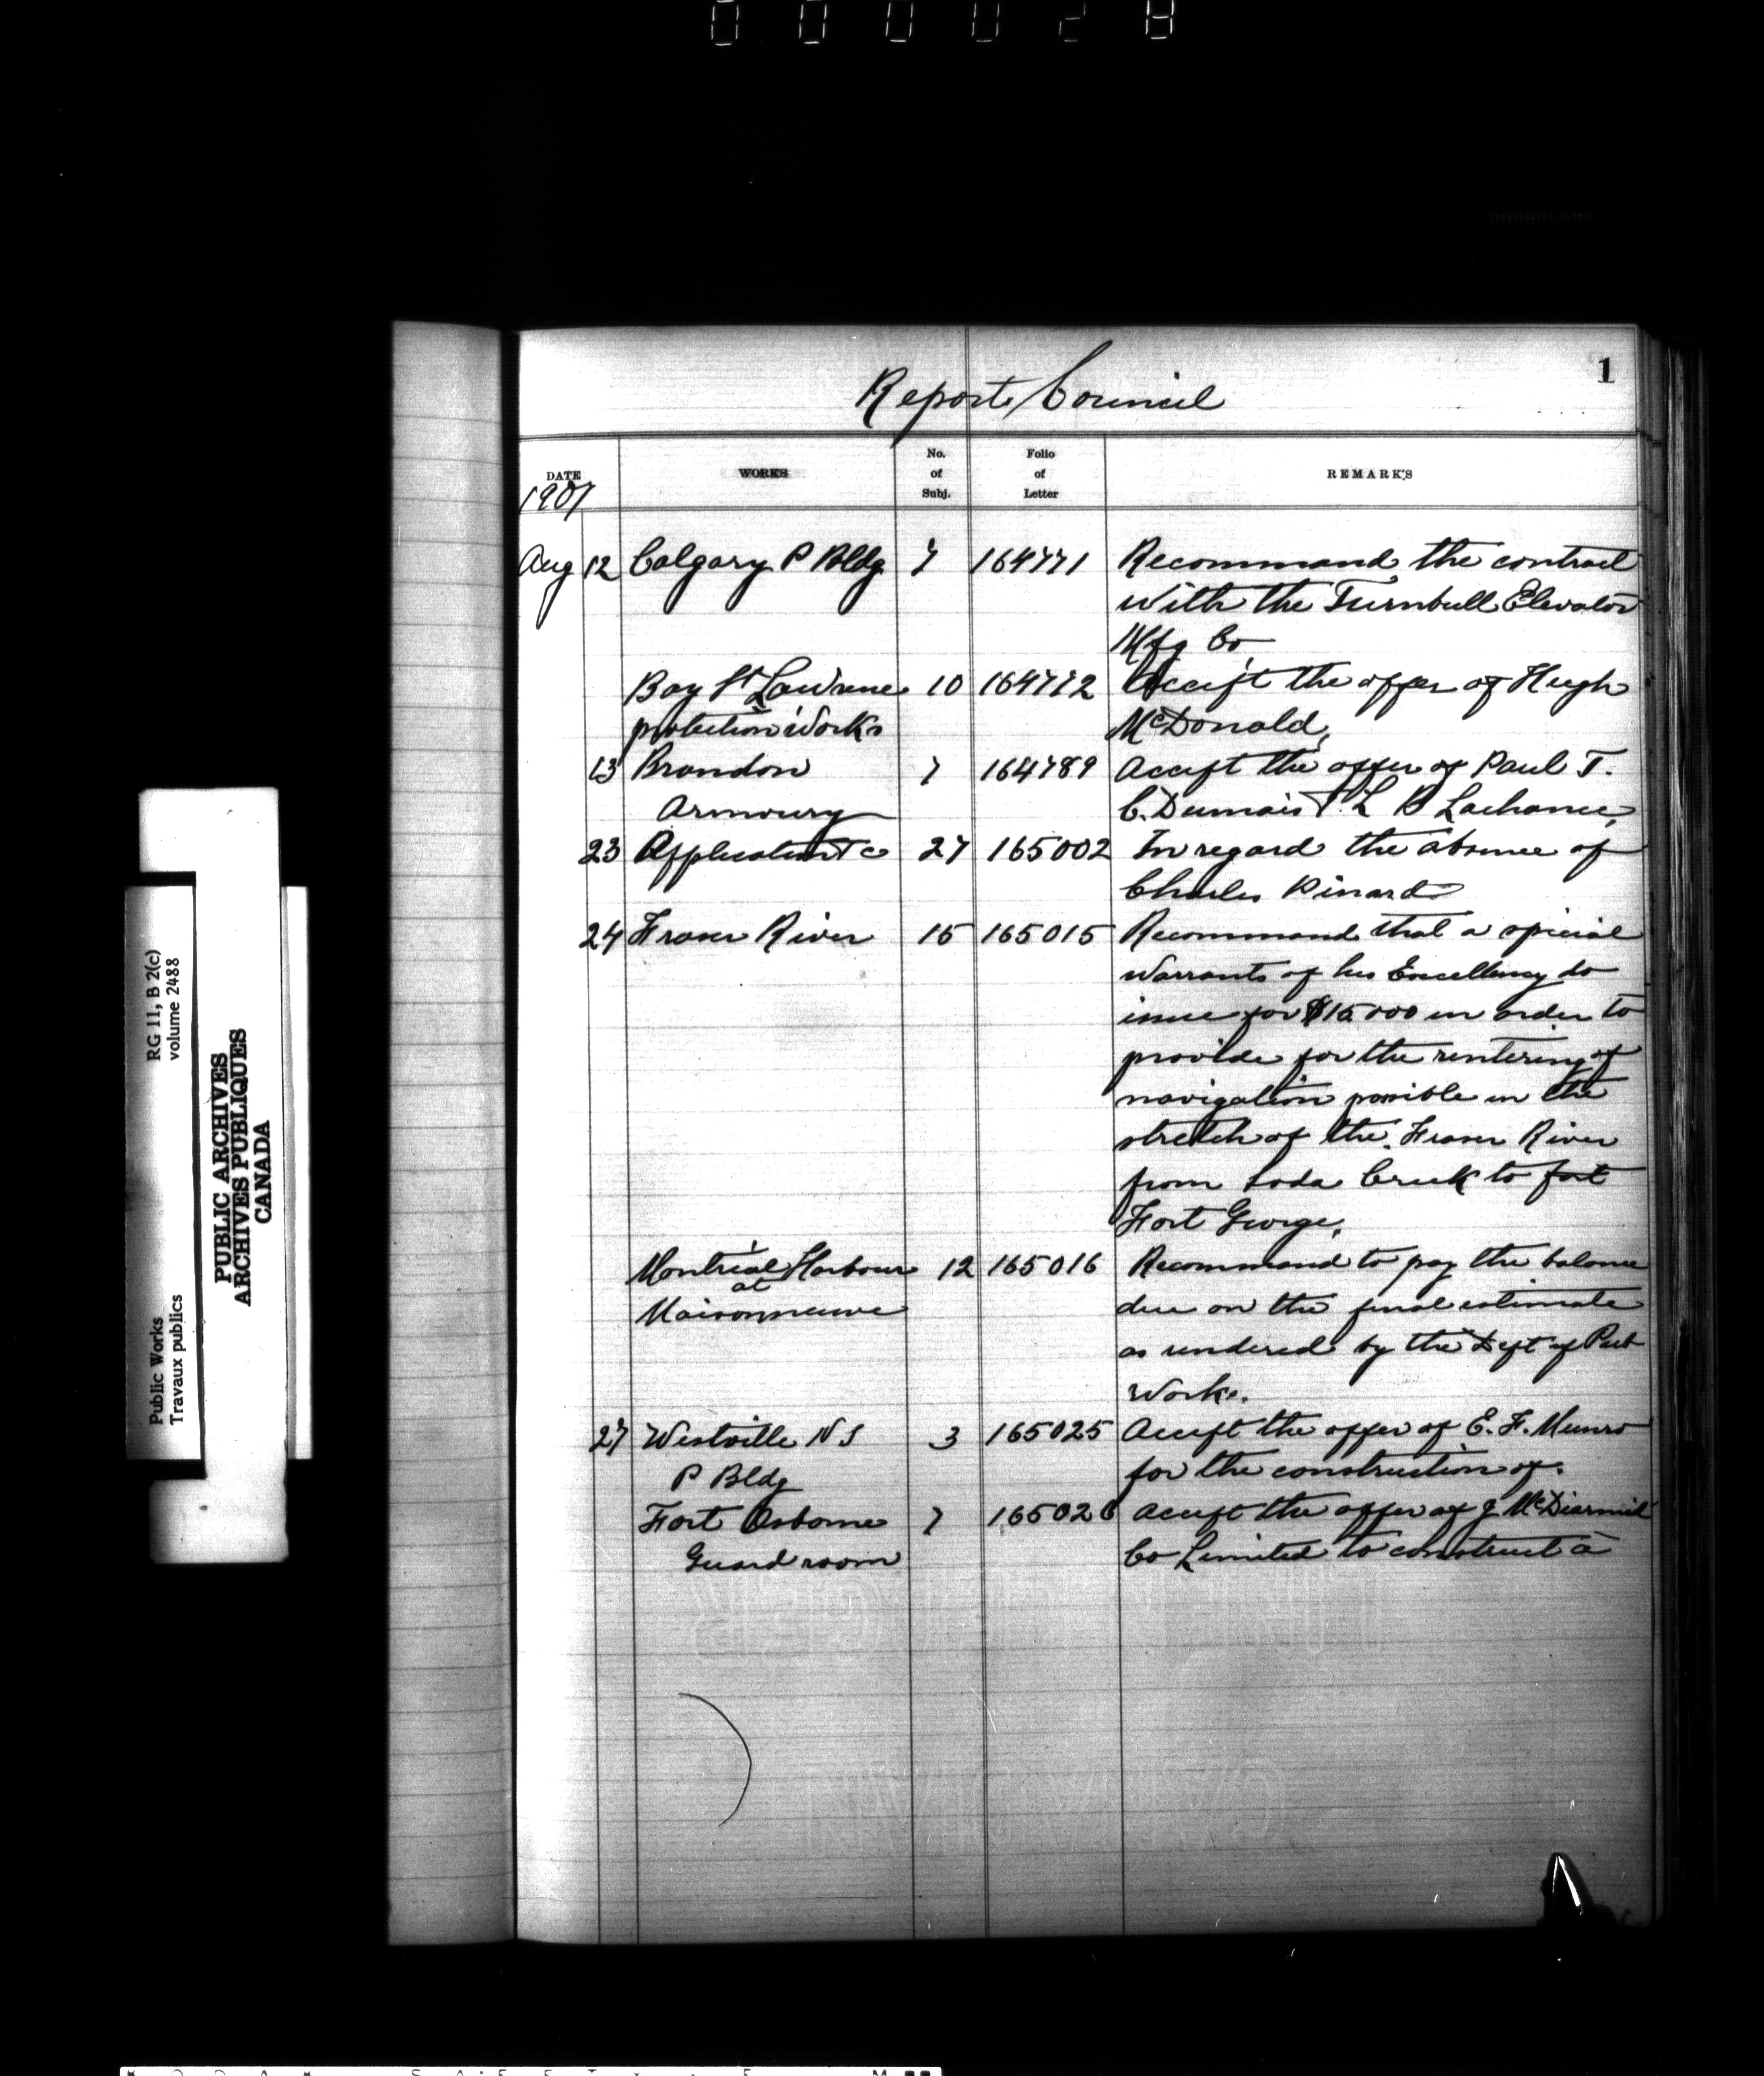 000028
1
Report Council
DATE WORKS No. of Subj. Folio of Letter REMARKS
1907
Aug 12 Calgary P Bldg 7 164771 Recommand the contract
with the Turnbull Elevator
Mfg Co
Bay St Lawrence 10 164772 Accept the offer of Hugh
protection Works McDonald,
13 Brandon 7 164789 Accept the offer of Paul T.
Armoury C. Dumais & L B Lachance,
23 Application &c 27 165002 In regard the absence of
Charles Pinard
24 Fraser River 15 165015 Recommand that a special
warrants of his Excellency do
issue for $15,000 in order to
provide for the rentering of
navigation possible in the
stretch of the Fraser River
from Soda Creek to fort
Fort George.
Montréal Harbour 12 165016 Recommand to pay the balance
at
Maisonneuve due on the final estimate
as rendered by the Dept of Pub
Works.
27 Westville N S 3 165025 Accept the offer of E. F. Munro
P Bldg for the construction of.
Fort Osborne 7 165026 Accept the offer of J McDiarmid
Guard room Co Limited to construct a
Public Works RG 11, B 2(c)
Travaux publics volume 2488
PUBLIC ARCHIVES
ARCHIVES PUBLIQUES
CANADA